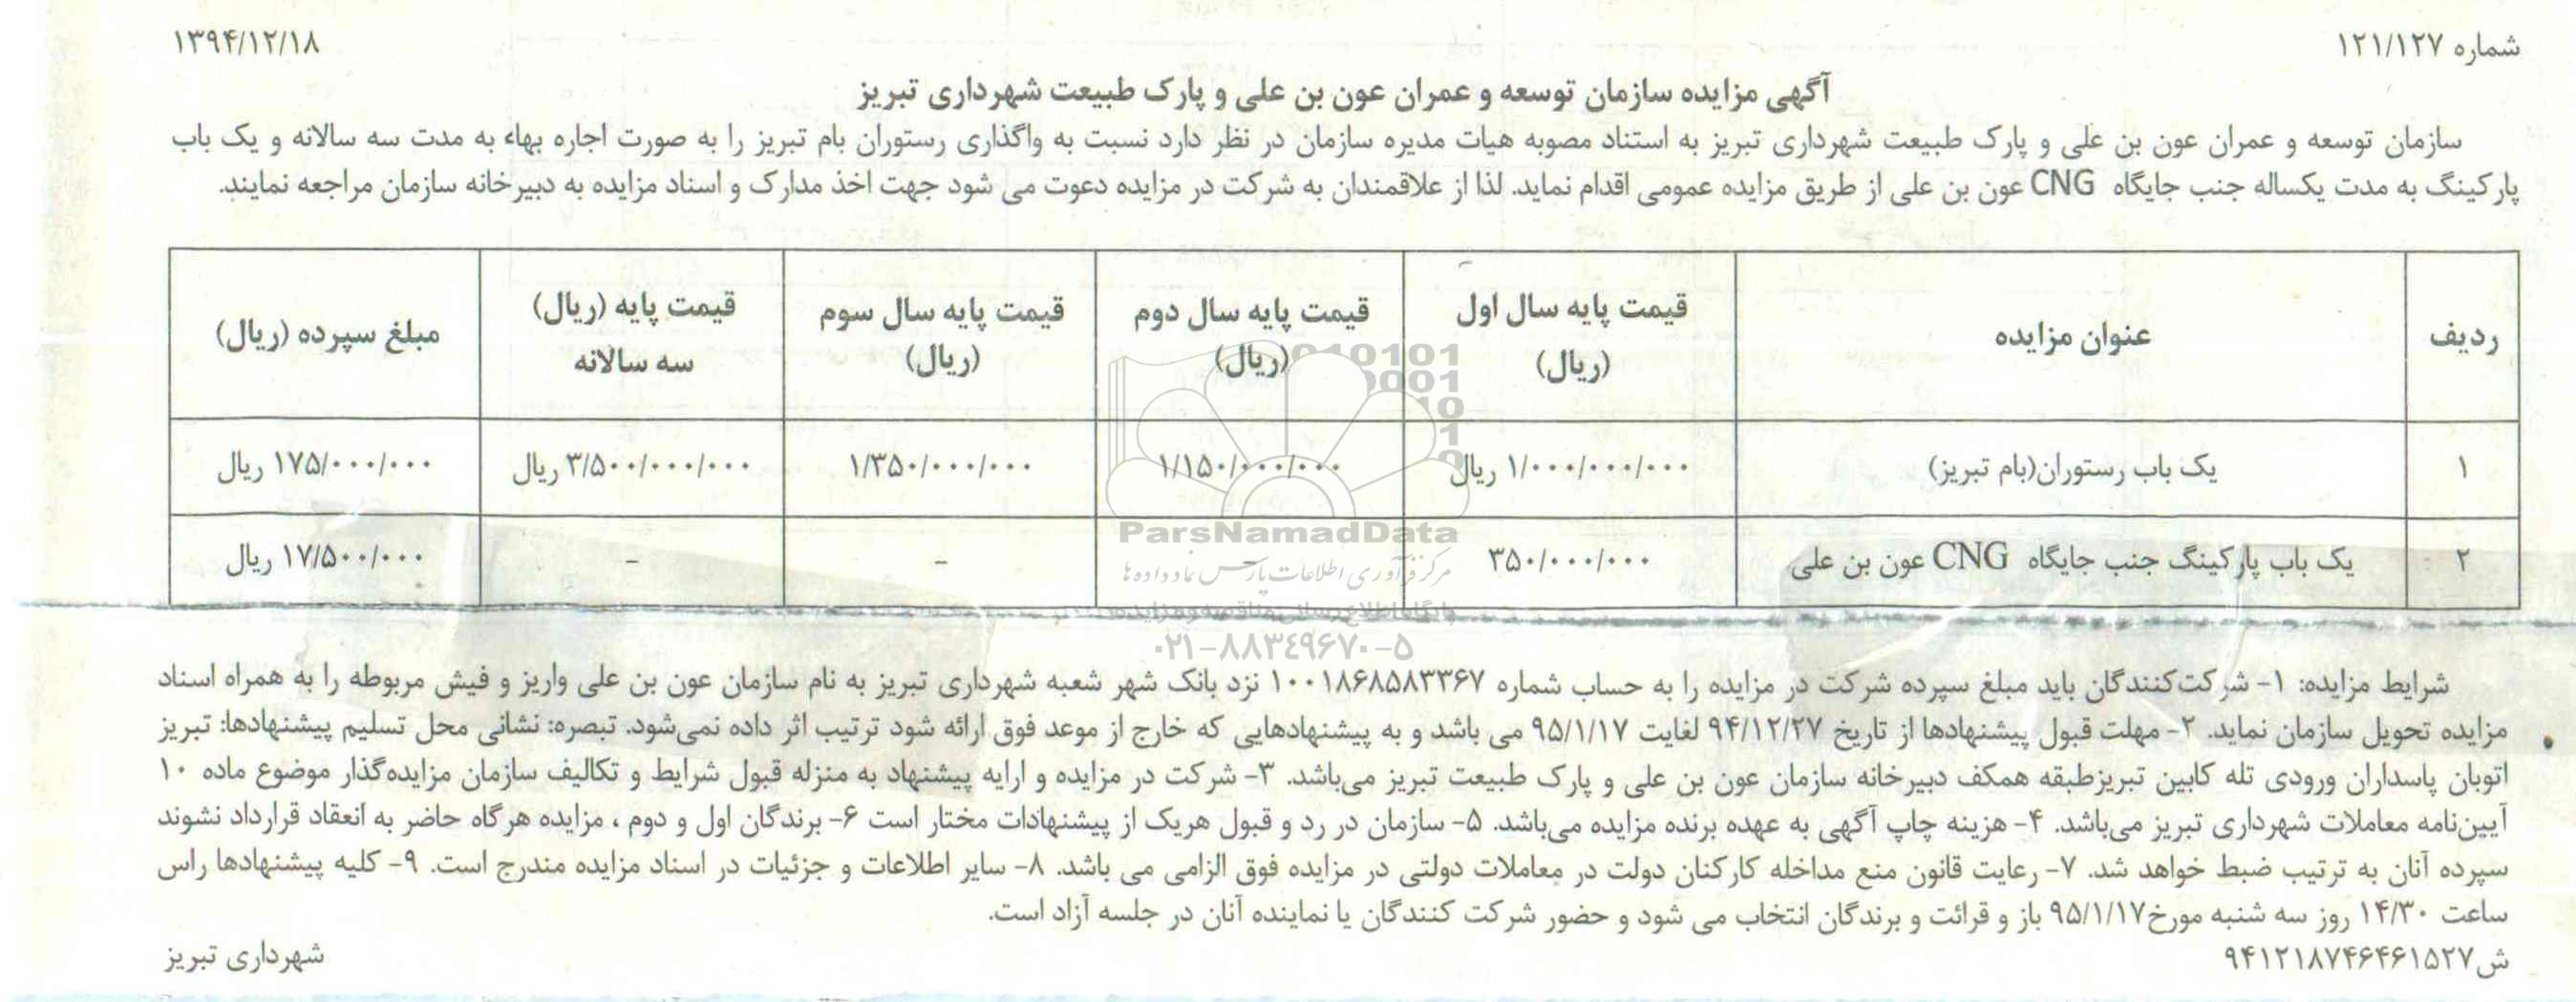 شماره ۱۲۱/۱۲۷
۱۳۹۴/۱۲/۱۸
آگهی مزایده سازمان توسعه و عمران عون بن علی و پارک طبیعت شهرداری تبریز
سازمان توسعه و عمران عون بن علی و پارک طبیعت شهرداری تبریز به استناد مصوبه هیات مدیره سازمان در نظر دارد نسبت به واگذاری رستوران بام تبریز را به صورت اجاره بهاء به مدت سه سالانه و یک باب
پارکینگ به مدت یکساله جنب جایگاه CNG عون بن علی از طریق مزایده عمومی اقدام نماید. لذا از علاقمندان به شرکت در مزایده دعوت می شود جهت اخذ مدارک و اسناد مزایده به دبیرخانه سازمان مراجعه نمایند.
ردیف
عنوان مزایده
قیمت پایه سال اول
(ریال)
قیمت پایه سال دوم
(ریال)
قیمت پایه سال سوم
(ریال)
قیمت پایه (ریال)
سه سالانه
مبلغ سپرده (ریال)
۱
یک باب رستوران(بام تبریز)
۱/۰۰۰/۰۰۰/۰۰۰ ریال
۱/۱۵۰/۰۰۰/۰۰۰
۱/۳۵۰/۰۰۰/۰۰۰
۳/۵۰۰/۰۰۰/۰۰۰ ریال
۱۷۵/۰۰۰/۰۰۰ ریال
۲
یک باب پارکینگ جنب جایگاه CNG عون بن علی
۳۵۰/۰۰۰/۰۰۰
-
-
۱۷/۵۰۰/۰۰۰ ریال
ParsNamadData
مرکز فرآوری اطلاعات پارس نماد داده ها
پایگاه اطلاع رسانی مناقصه و مزایده
۰۲۱-۸۸۳۴۹۶۷۰-۵
شرایط مزایده: ۱- شرکت‌کنندگان باید مبلغ سپرده شرکت در مزایده را به حساب شماره ۱۰۰۱۸۶۸۵۸۳۳۶۷ نزد بانک شهر شعبه شهرداری تبریز به نام سازمان عون بن علی واریز و فیش مربوطه را به همراه اسناد
مزایده تحویل سازمان نماید. ۲- مهلت قبول پیشنهادها از تاریخ ۹۴/۱۲/۲۷ لغایت ۹۵/۱/۱۷ می باشد و به پیشنهادهایی که خارج از موعد فوق ارائه شود ترتیب اثر داده نمی‌شود. تبصره: نشانی محل تسلیم پیشنهادها: تبریز
اتوبان پاسداران ورودی تله کابین تبریزطبقه همکف دبیرخانه سازمان عون بن علی و پارک طبیعت تبریز می‌باشد. ۳- شرکت در مزایده و ارایه پیشنهاد به منزله قبول شرایط و تکالیف سازمان مزایده‌گذار موضوع ماده ۱۰
آیین‌نامه معاملات شهرداری تبریز می‌باشد. ۴- هزینه چاپ آگهی به عهده برنده مزایده می‌باشد. ۵- سازمان در رد و قبول هریک از پیشنهادات مختار است ۶- برندگان اول و دوم ، مزایده هرگاه حاضر به انعقاد قرارداد نشوند
سپرده آنان به ترتیب ضبط خواهد شد. ۷- رعایت قانون منع مداخله کارکنان دولت در معاملات دولتی در مزایده فوق الزامی می باشد. ۸- سایر اطلاعات و جزئیات در اسناد مزایده مندرج است. ۹- کلیه پیشنهادها راس
ساعت ۱۴/۳۰ روز سه شنبه مورخ۹۵/۱/۱۷ باز و قرائت و برندگان انتخاب می شود و حضور شرکت کنندگان یا نماینده آنان در جلسه آزاد است.
ش۹۴۱۲۱۸۷۴۶۴۶۱۵۲۷
شهرداری تبریز